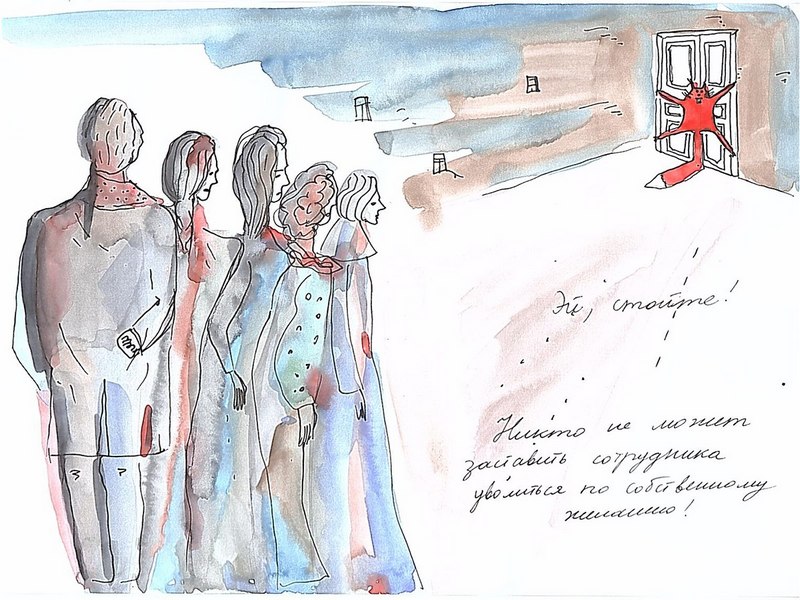 Эй, стойте!
Никто не может
заставить сотрудника
уволиться по собственному
желанию!